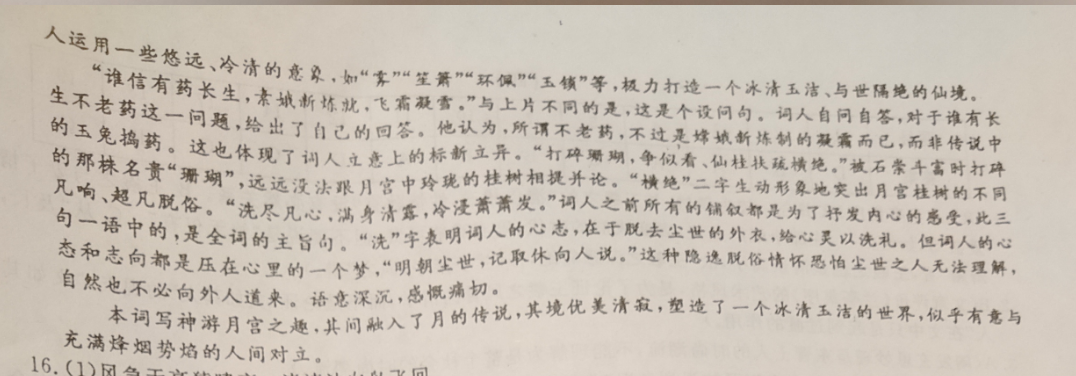 人运用一些悠远、冷清的意象,如“雾”“笙箫”“环佩”“玉锁”等,极力打造一个冰清玉洁、与世隔绝的仙境。
“谁信有药长生,素娥新炼就,飞霜凝雪。”与上片不同的是,这是个设问句。词人自问自答,对于谁有长
生不老药这一问题,给出了自己的回答。他认为,所谓不老药,不过是嫦娥新炼制的凝霜而已,而非传说中
的玉兔捣药。这也体现了词人立意上的标新立异。“打碎珊瑚,争似看、仙桂扶疏横绝。”被石崇斗富时打碎
的那株名贵“珊瑚”,远远没法跟月宫中玲珑的桂树相提并论。“横绝”二字生动形象地突出月宫桂树的不同
凡响、超凡脱俗。“洗尽凡心,满身清露,冷浸萧萧发。”词人之前所有的铺叙都是为了抒发内心的感受,此三
句一语中的,是全词的主旨句。“洗”字表明词人的心志,在于脱去尘世的外衣,给心灵以洗礼。但词人的心
态和志向都是压在心里的一个梦,“明朝尘世,记取休向人说。”这种隐逸脱俗情怀恐怕尘世之人无法理解,
自然也不必向外人道来。语意深沉,感慨痛切。
本词写神游月宫之趣,其间融入了月的传说,其境优美清寂,塑造了一个冰清玉洁的世界,似乎有意与
充满烽烟势焰的人间对立。
16.(1)风急天高猿啸哀